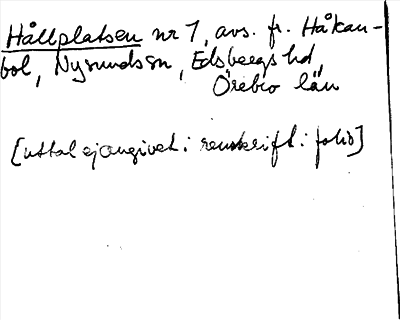 Hållplatsen nr 7, avs. fr. Håkan-
bol, Nysundssn, Edsbergs hd,
Örebro län
[uttal ej angivet i renskrift i folio]